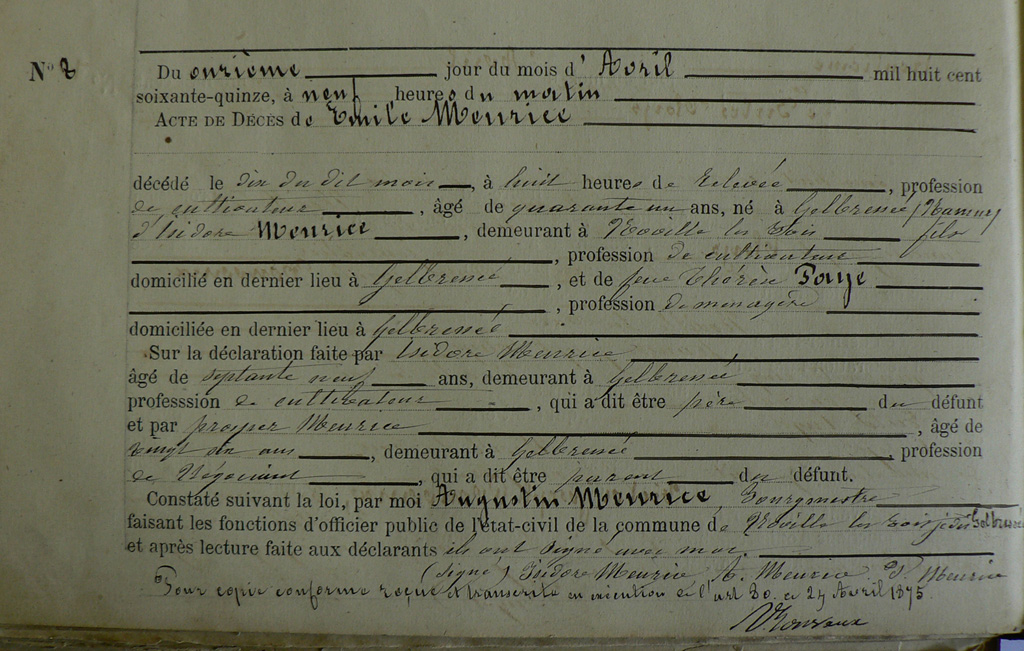 N° 2
Du onzième jour du mois d' Avril mil huit cent
soixante-quinze, à neuf heures du matin
ACTE DE DÉCÈS de Emile Meurice
décédé le dix du dit mois, à huit heures de relevée, profession
de cultivateur, âgé de quarante un ans, né à Gelbressée (Namur)
d'Isidore Meurice, demeurant à Noville les Bois fils
, profession de cultivateur
domicilié en dernier lieu à Gelbressée, et de feue Thérèse
, profession de menagère
domiciliée en dernier lieu à Gelbressée
Sur la déclaration faite par Isidore Meurice
âgé de septante neuf ans, demeurant à Gelbressée
professsion de cultivateur, qui a dit être père du défunt
et par prosper Meurice, âgé de
vingt six ans, demeurant à Gelbressée, profession
de Négociant, qui a dit être parent du défunt.
Constaté suivant la loi, par moi Augustin Meurice, Bourgmestre
faisant les fonctions d'officier public de l'état-civil de la commune de Noville les Bois Gelbressée
et après lecture faite aux déclarants ils ont signé avec moi.
(signé) Isidore Meurice A. Meurice P. Meurice
Pour copie conforme reçue et transcrite en exécution de l'art 80. ce 24 Avril 1875